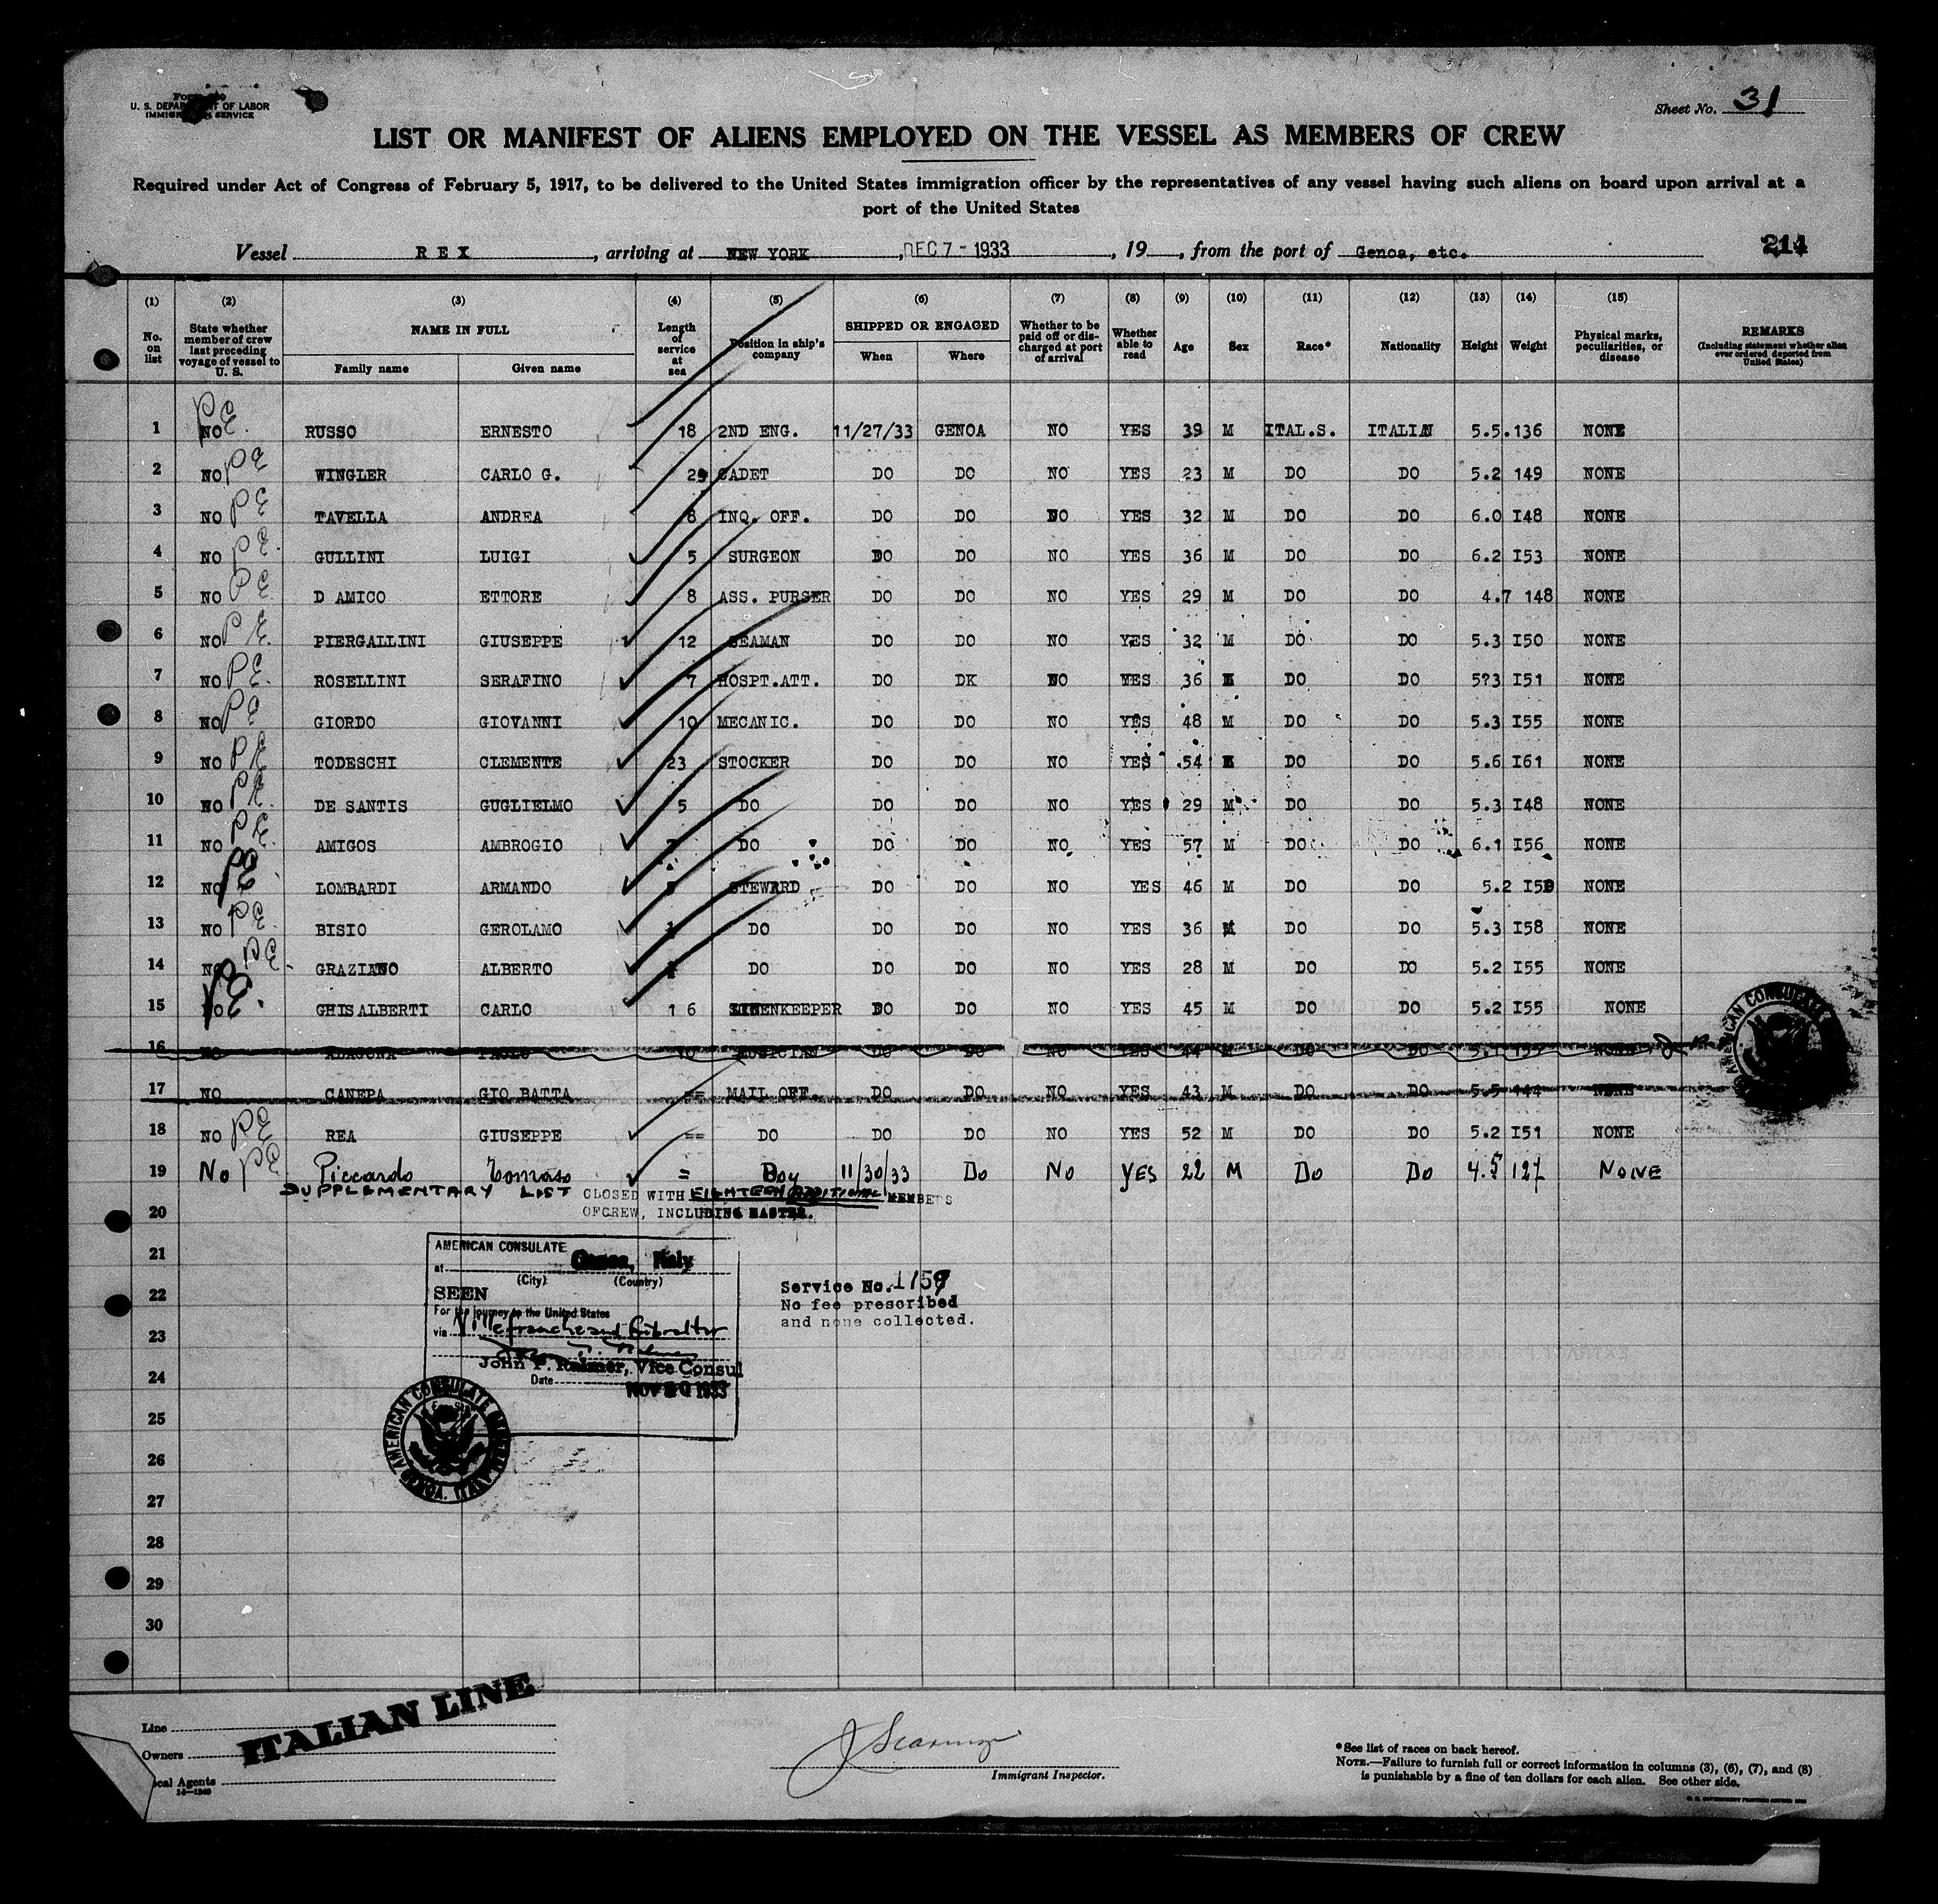 U. S. DEPARTMENT OF LABOR
IMMIGRATION SERVICE
Sheet No. 31
LIST OR MANIFEST OF ALIENS EMPLOYED ON THE VESSEL AS MEMBERS OF CREW
Required under Act of Congress of February 5, 1917, to be delivered to the United States immigration officer by the representatives of any vessel having such aliens on board upon arrival at a
port of the United States
Vessel REX, arriving at NEW YORK, DEC 7 - 1933, 19__, from the port of Genoa, etc. 214
(1) (2) (3) (4) (5) (6) (7) (8) (9) (10) (11) (12) (13) (14) (15)
No. on list
State whether member of crew last preceding voyage of vessel to U. S.
NAME IN FULL
Family name
Given name
Length of service at sea
Position in ship's company
SHIPPED OR ENGAGED
When
Where
Whether to be paid off or discharged at port of arrival
Whether able to read
Age
Sex
Race*
Nationality
Height
Weight
Physical marks, peculiarities, or disease
REMARKS
(Including statement whether alien ever ordered deported from United States)
1 NO PE. RUSSO ERNESTO 18 2ND ENG. 11/27/33 GENOA NO YES 39 M ITAL.S. ITALIAN 5.5.136 NONE
2 NO PE WINGLER CARLO G. 29 CADET DO DO NO YES 23 M DO DO 5.2 149 NONE
3 NO PE TAVELLA ANDREA 8 INQ. OFF. DO DO NO YES 32 M DO DO 6.0 I48 NONE
4 NO PE. GULLINI LUIGI 5 SURGEON DO DO NO YES 36 M DO DO 6.2 I53 NONE
5 NO PE D AMICO ETTORE 8 ASS. PURSER DO DO NO YES 29 M DO DO 4.7 148 NONE
6 NO PE. PIERGALLINI GIUSEPPE 12 SEAMAN DO DO NO YES 32 M DO DO 5.3 I50 NONE
7 NO PE. ROSELLINI SERAFINO 7 HOSPT.ATT. DO DK NO YES 36 DO DO 5?3 I51 NONE
8 NO PE GIORDO GIOVANNI 10 MECANIC. DO DO NO YES 48 M DO DO 5.3 I55 NONE
9 NO PE TODESCHI CLEMENTE 23 STOCKER DO DO NO YES 54 DO DO 5.6 I61 NONE
10 NO PE. DE SANTIS GUGLIELMO 5 DO DO DO NO YES 29 M DO DO 5.3 I48 NONE
11 NO PE. AMIGOS AMBROGIO DO DO DO NO YES 57 M DO DO 6.1 I56 NONE
12 NO PE LOMBARDI ARMANDO STEWARD DO DO NO YES 46 M DO DO 5.2 NONE
13 NO PE. BISIO GEROLAMO DO DO DO NO YES 36 M DO DO 5.3 I58 NONE
14 NO PE. GRAZIANO ALBERTO DO DO DO NO YES 28 M DO DO 5.2 I55 NONE
15 NO PE. GHISALBERTI CARLO 1 6 LINENKEEPER DO DO NO YES 45 M DO DO 5.2 I55 NONE
16 NO PAOLO 10 MUSICIAN DO DO NO YES 44 M DO DO 5.1 155 NONE
17 NO CANEPA GIO BATTA == MAIL OFF. DO DO NO YES 43 M DO DO 5.5 144 NONE
18 NO PE REA GIUSEPPE == DO DO DO NO YES 52 M DO DO 5.2 I51 NONE
19 No PE Piccardo Tomaso = Boy 11/30/33 Do No YES 22 M Do Do 4.5 127 NONE
SUPPLEMENTARY LIST CLOSED WITH EIGHTEEN ADDITIONAL MEMBERS
20 OFCREW, INCLUDING MASTER.
21
22
23
24
25
26
27
28
29
30
AMERICAN CONSULATE
at Genoa, Italy
(City) (Country)
SEEN
For the journey to the United States
via Villefranche and Gibraltar
John P. Palmer, Vice Consul
Date NOV 30 1933
Service No. 1759
No fee prescribed
and none collected.
AMERICAN CONSULATE GENERAL
GENOA, ITALY
AMERICAN CONSULATE
Line
Owners
Local Agents
ITALIAN LINE
Immigrant Inspector.
*See list of races on back hereof.
NOTE.—Failure to furnish full or correct information in columns (3), (6), (7), and (8)
is punishable by a fine of ten dollars for each alien. See other side.